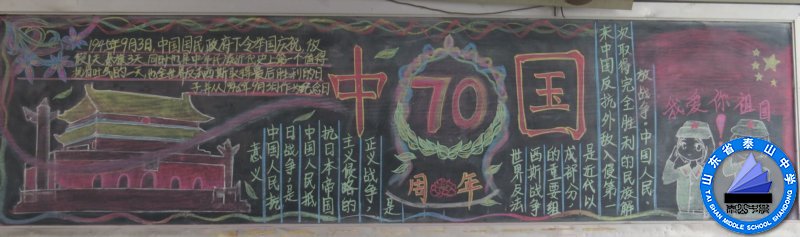 1945年9月3日,中国国民政府下令举国庆祝,放
假1天,悬旗3天,同时也是中华民族近代史上第一个值得
的一天,也全世界反法西斯取得最后胜利的日
子并从1946年9月3日作为纪念日
中
70
国
周年
意义
中国人民抗
日战争,是
中国人民抵
抗日本帝国
主义侵略的
正义战争,是
世界反法
西斯战争
的重要组
成部分,
是近代以
来中国反抗外敌入侵第
次取得完全胜利的民族解
放战争。中国人民
我爱你祖国!
山东省泰山中学
TAI SHAN MIDDLE SCHOOL SHANDONG